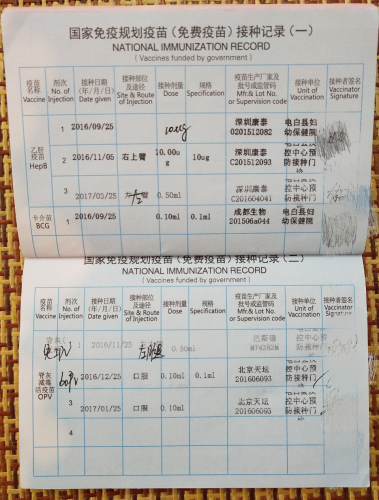 国家免疫规划疫苗（免费疫苗）接种记录（一）
NATIONAL IMMUNIZATION RECORD
( Vaccines funded by government )
疫苗名称 Vaccine 剂次 No. of Injection 接种日期（年/月/日） Date given 接种部位及途径 Site & Route of Injection 接种剂量 Dose 规格 Specification 疫苗生产厂家及批号或监管码 Mfr.& Lot No. or Supervision code 接种单位 Unit of Vaccination 接种者签名 Vaccinator Signature
乙肝疫苗 HepB
1 2016/09/25 10ug 深圳康泰 0201512082 电白县妇幼保健院
2 2016/11/05 右上臂 10.00ug 10ug 深圳康泰 C201512093 控中心预防接种门诊
3 2017/03/25 0.50ml 深圳康泰 C201604041 控中心预防接种门诊
卡介苗 BCG 1 2016/09/25 0.10ml 0.1ml 成都生物 201506a044 电白县妇幼保健院
国家免疫规划疫苗（免费疫苗）接种记录（二）
NATIONAL IMMUNIZATION RECORD
( Vaccines funded by government )
疫苗名称 Vaccine 剂次 No. of Injection 接种日期（年/月/日） Date given 接种部位及途径 Site & Route of Injection 接种剂量 Dose 规格 Specification 疫苗生产厂家及批号或监管码 Mfr.& Lot No. or Supervision code 接种单位 Unit of Vaccination 接种者签名 Vaccinator Signature
脊灰 1 2016/11/25 0.50ml 巴斯德 控中心预防接种门
脊灰减毒活疫苗 OPV
2016/12/25 口服 0.10ml 0.1ml 北京天坛 201606093 控中心预防接种门
3 2017/01/25 口服 0.10ml 北京天坛 201606093 控中心预防接种门
4